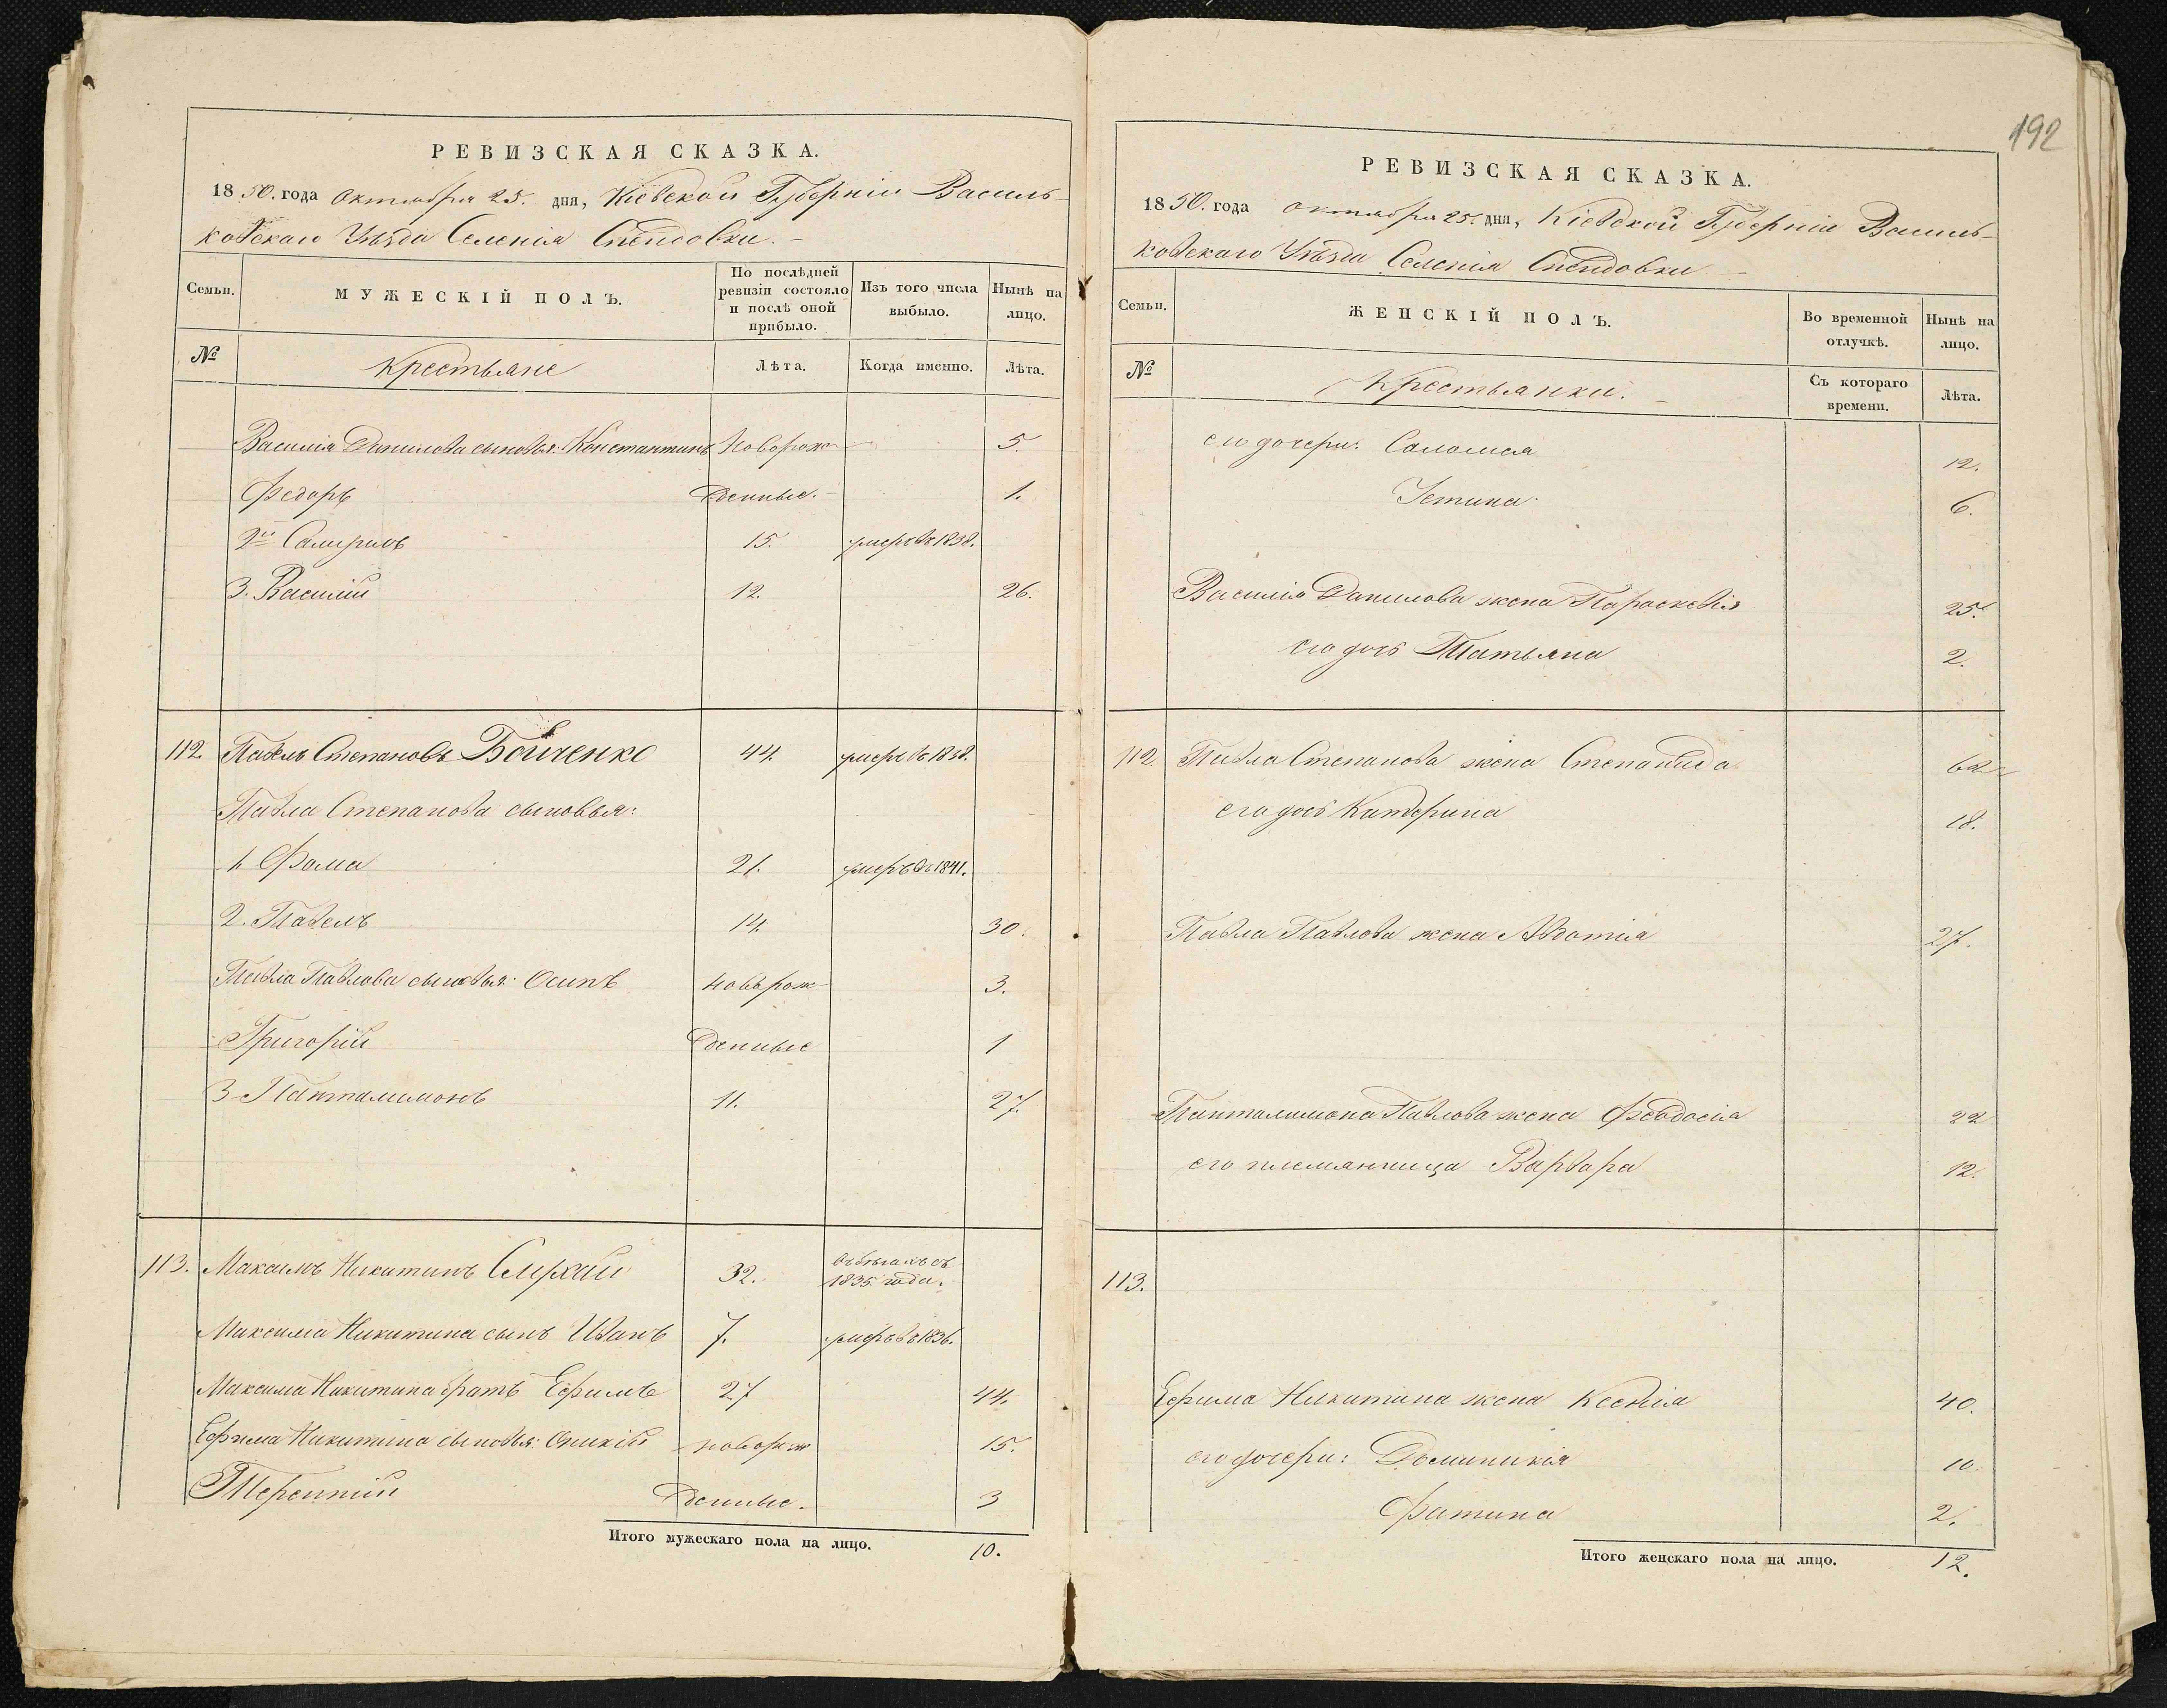 192
РЕВИЗСКАЯ СКАЗКА.
1850. года октября 25. дня, Кіевской Губерніи Василь-
ковскаго Уѣзда Селенія
Семьи.
МУЖЕСКІЙ ПОЛЪ.
По послѣдней ревизіи состояло и послѣ оной прибыло.
Изъ того числа выбыло.
Нынѣ на лицо.
№
Крестьяне
Лѣта.
Когда именно.
Лѣта.
Василія Данилова сыновья: Константинъ Новорож- 5.
Федоръ денные. 1.
2й 15. умеръ въ 1838.
3. Василій 12. 26.
112. Павелъ Степановъ Бойченко 44. умеръ въ
Павла Степанова сыновья:
1. Фома 21. умеръ въ 1841.
2. Павелъ 14. 30.
Павла Павлова сыновья: Осипъ новорож- 3.
Григорій денные 1
3 Панталимонъ 11. 27.
113. Максимъ Никитинъ 32. въ бѣгахъ съ 1835 года.
Максима Никитина сынъ Иванъ 7. умеръ въ 1836.
Максима Никитина братъ Ефимъ 27 44.
Ефима Никитина сыновья: Оникій новорож 15.
Терентій денные. 3
Итого мужескаго пола на лицо. 10.
РЕВИЗСКАЯ СКАЗКА.
1850. года октября 25. дня, Кіевской Губерніи Василь-
ковскаго Уѣзда Селенія
Семьи.
ЖЕНСКІЙ ПОЛЪ.
Во временной отлучкѣ.
Нынѣ на лицо.
№
Крестьянки.
Съ котораго времени.
Лѣта.
его дочери: Саломея 12.
Устина 6.
Василія Данилова жена Параскевія 25.
его дочь Татьяна 2.
112 Павла Степанова жена Степанида 62
его дочь Катерина 18.
Павла Павлова жена Авдотія 27.
Панталимона Павлова жена Феодосія 22
его племянница Варвара 12.
113.
Ефима Никитина жена Ксенія 40.
его дочери: Доминикія 10.
Фатина 2.
Итого женскаго пола на лицо. 12.